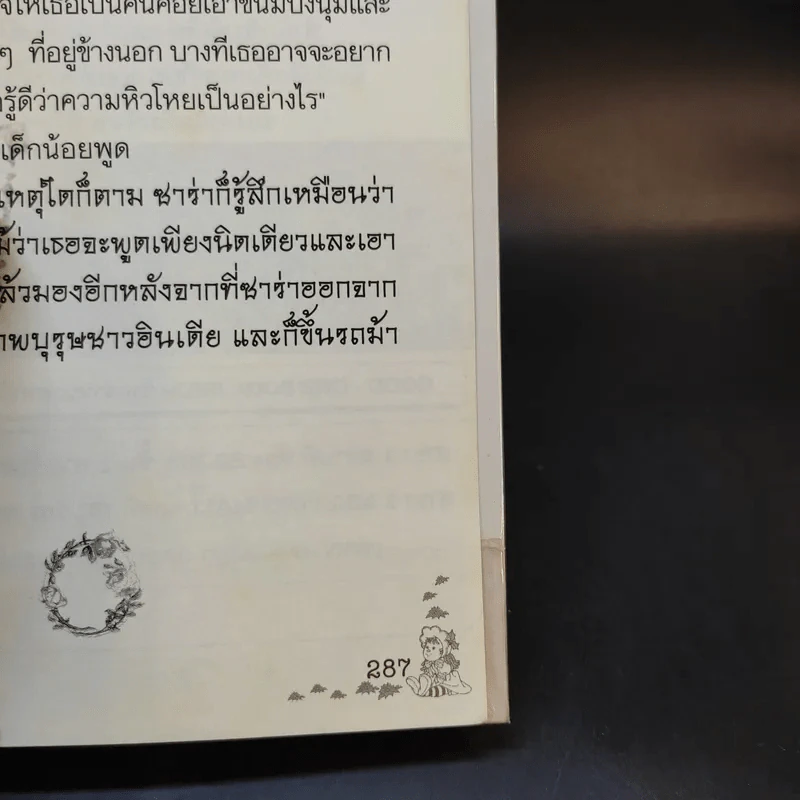 จให้เธอเป็นคนคอยเอาขนมปังนุ่มและ
ๆ ที่อยู่ข้างนอก บางทีเธออาจจะอยาก
รู้ดีว่าความหิวโหยเป็นอย่างไร"
เด็กน้อยพูด
เหตุใดก็ตาม ซาร่าก็รู้สึกเหมือนว่า
ม้ว่าเธอจะพูดเพียงนิดเดียวและเอา
ล้วมองอีกหลังจากที่ซาร่าออกจาก
าพบุรุษชาวอินเดีย และก็ขึ้นรถม้า
287